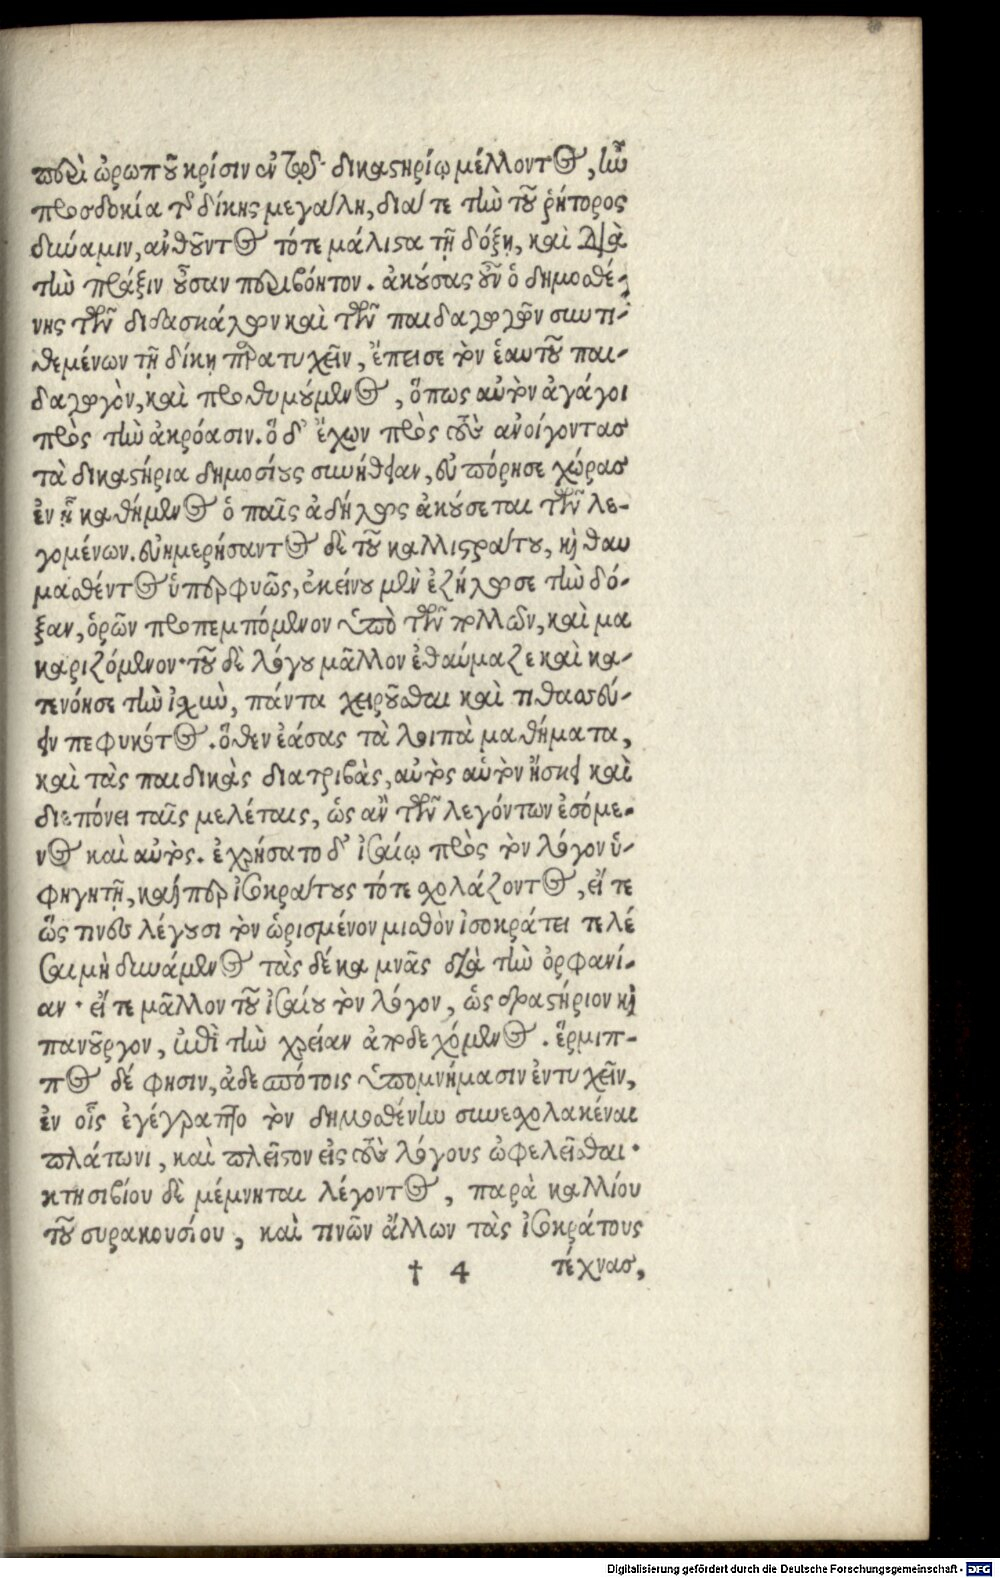 περὶ ὠρωποῦ κρίσιν ἐν τῷ δικαστηρίῳ μέλλοντος, ἦν
προσδοκία τῆς δίκης μεγάλη, διά τε τὴν τοῦ ῥήτορος
δύναμιν, ἀνθοῦντος τότε μάλιστα τῇ δόξῃ, καὶ διὰ
τὴν πρᾶξιν οὖσαν περιβόητον. ἀκούσας οὖν ὁ δημοσθέ-
νης τῶν διδασκάλων καὶ τῶν παιδαγωγῶν συντι-
θεμένων τῇ δίκῃ παρατυχεῖν, ἔπεισε τὸν ἑαυτοῦ παι-
δαγωγὸν, καὶ προθυμούμενος, ὅπως αὐτὸν ἀγάγοι
πρὸς τὴν ἀκρόασιν. ὁ δ' ἔχων πρὸς τοὺς ἀνοίγοντας
τὰ δικαστήρια δημοσίους συνήθειαν, εὐπόρησε χώρας
ἐν ᾗ καθήμενος ὁ παῖς ἀδήλως ἀκούσεται τῶν λε-
γομένων. εὐημερήσαντος δὲ τοῦ καλλιστράτου, καὶ θαυ
μασθέντος ὑπερφυῶς, ἐκείνου μὲν ἐζήλωσε τὴν δό-
ξαν, ὁρῶν προπεμπόμενον ὑπὸ τῶν πολλῶν, καὶ μα
καριζόμενον· τοῦ δὲ λόγου μᾶλλον ἐθαύμαζε καὶ κα-
τενόησε τὴν ἰσχὺν, πάντα χειροῦσθαι καὶ τιθασσεύ-
ειν πεφυκότος. ὅθεν ἐάσας τὰ λοιπὰ μαθήματα,
καὶ τὰς παιδικὰς διατριβὰς, αὐτὸς αὑτὸν ἤσκει καὶ
διεπόνει ταῖς μελέταις, ὡς ἂν τῶν λεγόντων ἐσόμε-
νος καὶ αὐτὸς. ἐχρήσατο δ' ἰσαίῳ πρὸς τὸν λόγον ὑ-
φηγητῇ, καίπερ ἰσοκράτους τότε σχολάζοντος, εἴτε
ὥς τινες λέγουσι τὸν ὡρισμένον μισθὸν ἰσοκράτει τελέ
σαι μὴ δυνάμενος τὰς δέκα μνᾶς διὰ τὴν ὀρφανί-
αν· εἴτε μᾶλλον τοῦ ἰσαίου τὸν λόγον, ὡς δραστήριον καὶ
πανοῦργον, ἐπὶ τὴν χρείαν ἀποδεχόμενος. ἕρμιπ-
πος δέ φησιν, ἀδεσπότοις ὑπομνήμασιν ἐντυχεῖν,
ἐν οἷς ἐγέγραπτο τὸν δημοσθένην συνεσχολακέναι
πλάτωνι, καὶ πλεῖστον εἰς τοὺς λόγους ὠφελεῖσθαι·
κτησιβίου δὲ μέμνηται λέγοντος, παρὰ καλλίου
τοῦ συρακουσίου, καὶ τινῶν ἄλλων τὰς ἰσοκράτους
† 4 τέχνας,
Digitalisierung gefördert durch die Deutsche Forschungsgemeinschaft - DFG